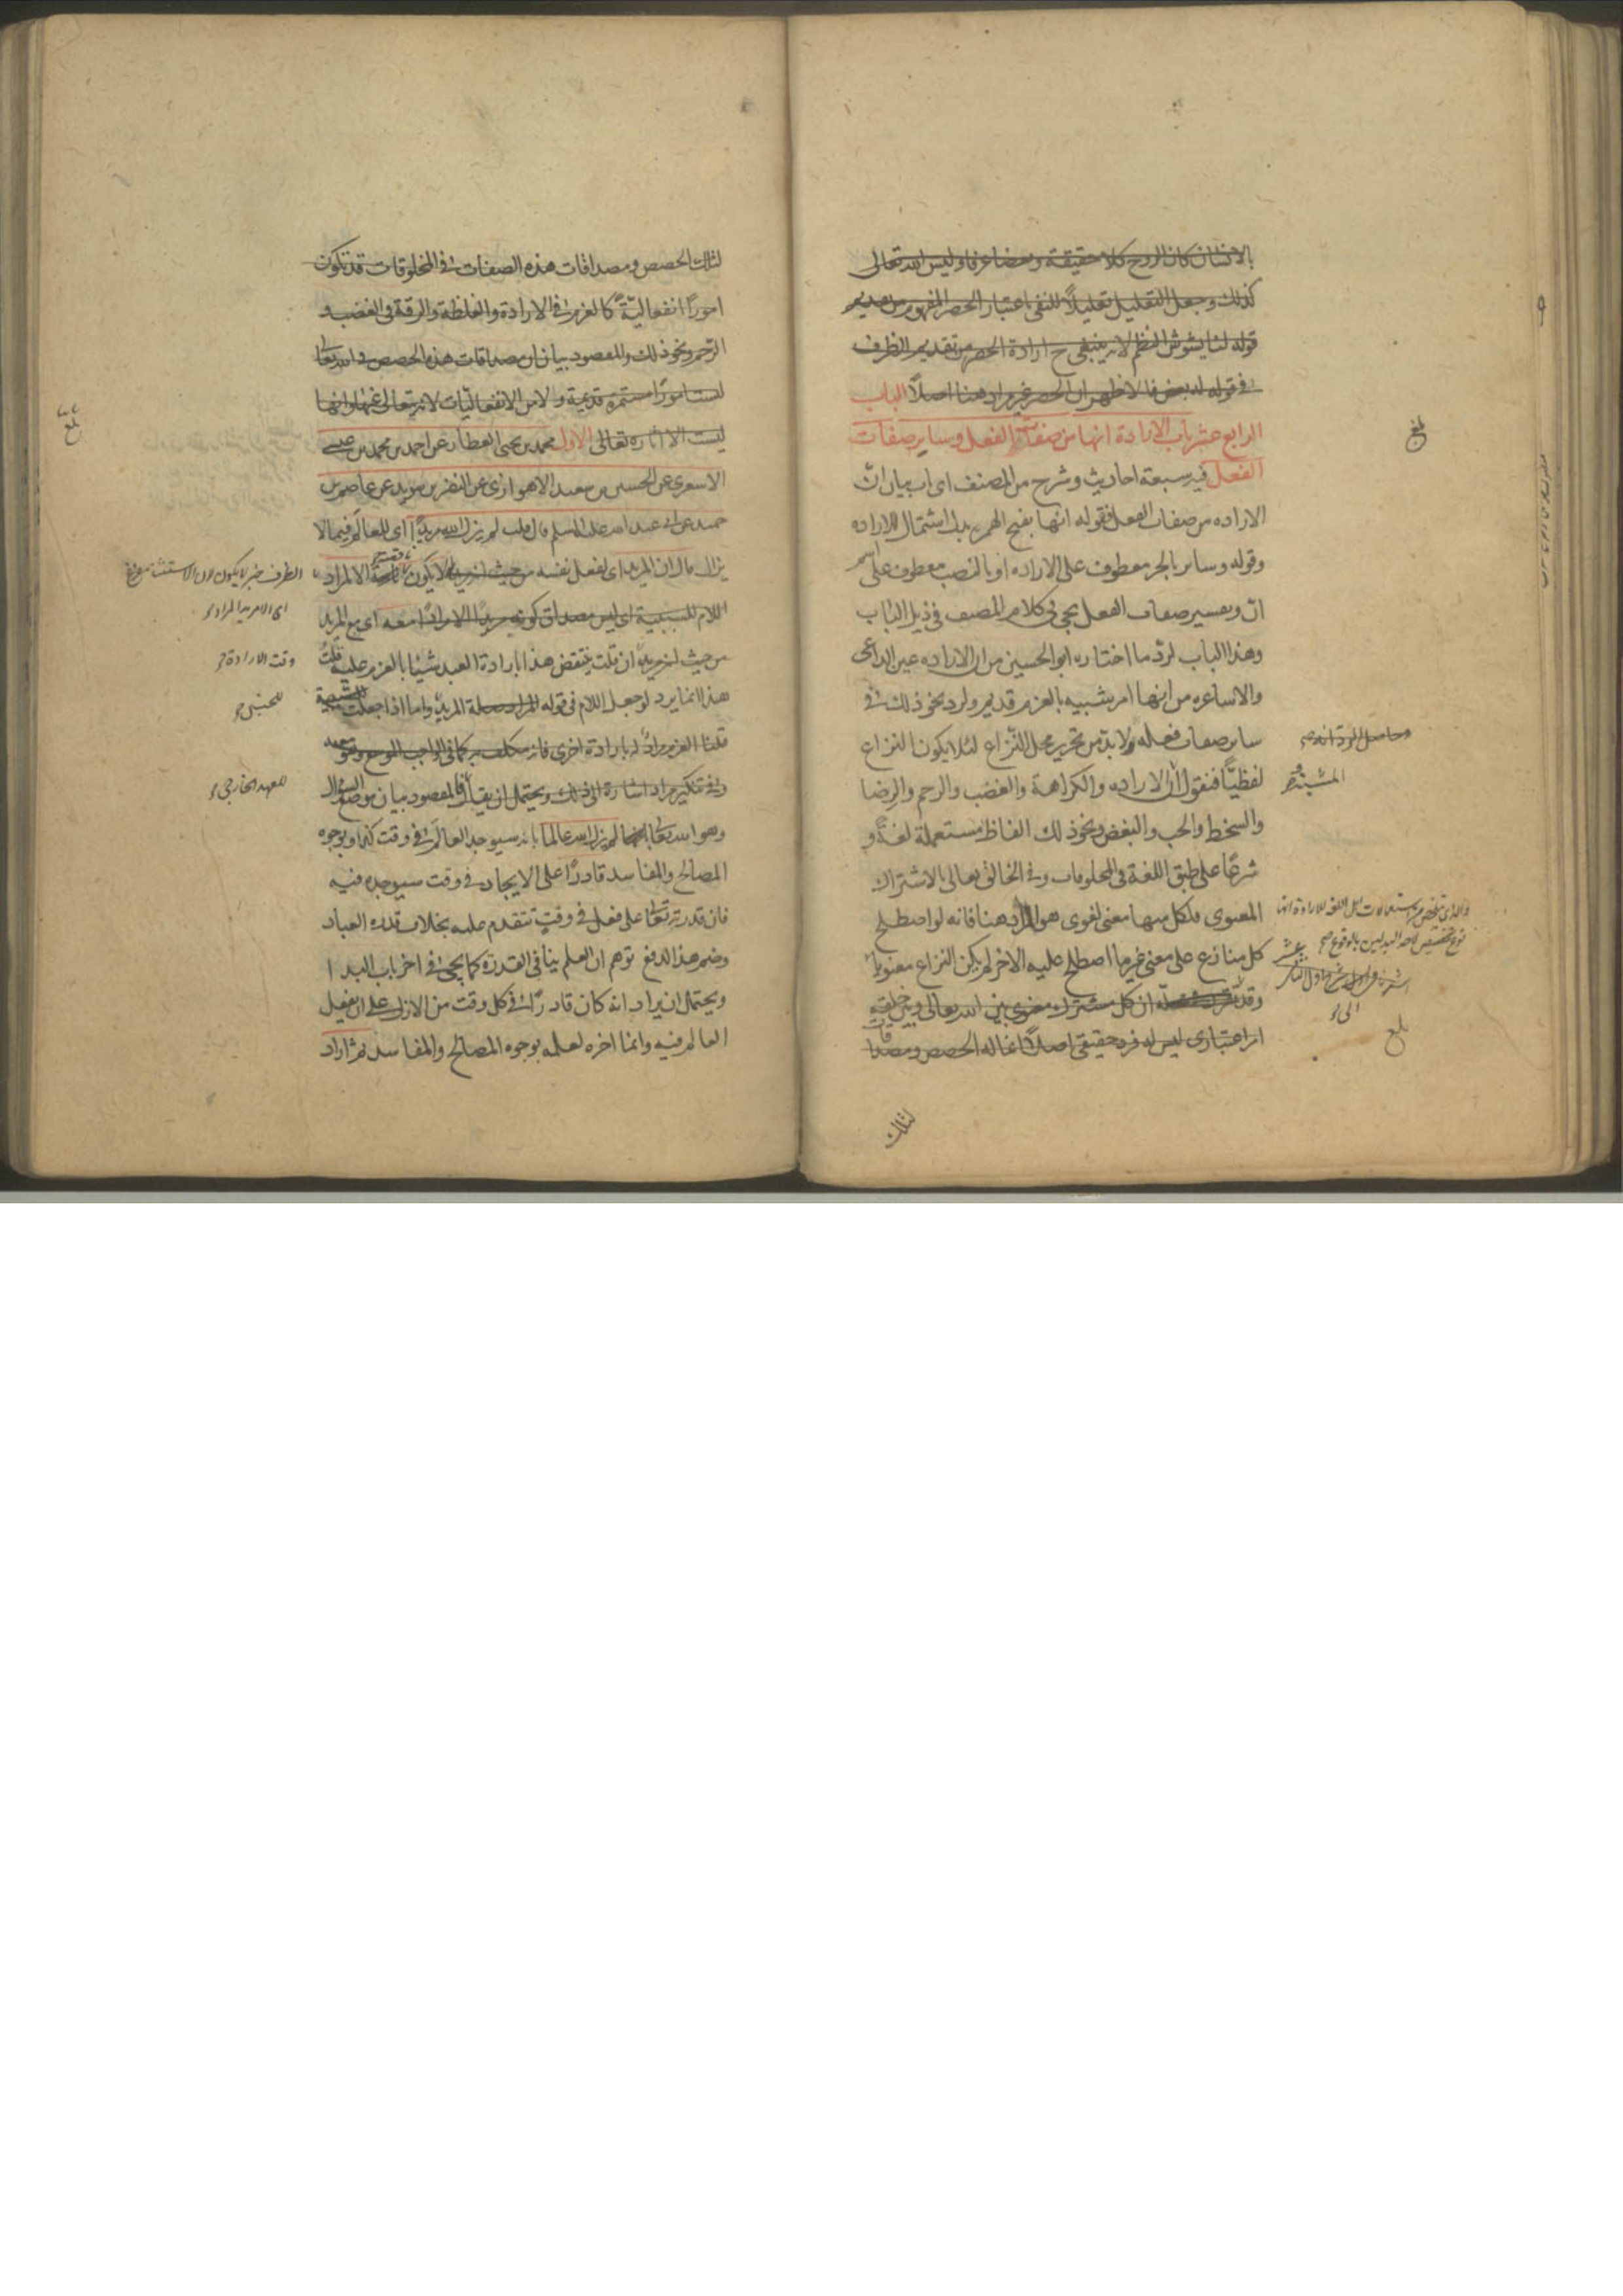 بالانسان كان الروح كلا حقيقة وبعضا عرفا وليس الله تعالى
كذلك وجعل التعليل تعليلاً للنفى اعتبار الحصر المفهوم من تقديم
قوله لنا يشوش النظم لانه ينبغي ح ارادة الحصر من تقديم الظرف
في قوله له بعض فالاظهر ان الحصر غير مراد هنا اصلاً الباب
الرابع عشر باب الارادة انها من صفات الفعل وساير صفات
الفعل فيه سبعة احاديث وشرح من المصنف اى باب بيان انّ
الاراده من صفات الفعل فقوله انها بفتح الهمزه بدل اشتمال للاراده
وقوله وساير بالجر معطوف على الاراده او بالنصب معطوف على اسم
انّ وتفسير صفات الفعل يجى فى كلام المصنف فى ذيل الباب
وهذا الباب لردّ ما اختاره ابو الحسين من ان الاراده عين الداعى
والاشاعره من انها امر شبيه بالعزم قديم ولرد نحو ذلك في
ساير صفات فعله ولا بدّ من تحرير محل النّزاع لئلا يكون النزاع
وحاصل الردّ انه
لفظيّاً فنقول انّ الاراده والكراهة والغضب والرحم والرضا
المشية
والسخط والحب والبغض ونحو ذلك الفاظ مستعملة لغةً و
شرعًا على طبق اللغة فى المخلوقات وفى الخالق تعالى بالاشتراك
المعنوى فلكل منها معنى لغوى هو المراد هنا فانه لو اصطلح
كل منازع على معنى غير ما اصطلح عليه الاخر لم يكن النزاع معنويا
وقد ان كل مشترك معنوى بين الله تعالى وبين خلقه
الى
امر اعتبارى ليس له فرد حقيقى اصلاً انما له الحصص ومصداقات
بلغ
لتلك
لتلك الحصص ومصداقات هذه الصفات في المخلوقات قد تكون
امورًا انفعاليّةً كالعزم في الارادة والغلظة والرقة فى الغضب و
الرّحم ونحو ذلك والمقصود بيان ان مصداقات هذه الحصص فى الله تعا
ليست امورًا مستمرة قديمة ولا من الانفعاليّات لانه تعالى عنها وانها
بلغ
ليست الا اثاره تعالى الاول محمد بن يحيى العطار عن احمد بن محمد بن عيسى
الاشعرى عن الحسين بن سعيد الاهوازى عن النضر بن سويد عن عاصم بن
حميد عن ابى عبد الله عليه السلم قال قلت لم يزل الله مريدًا اى للعالم فيما لا
يزال قال ان المريد اى لفعل نفسه من حيث انه مريد لا يكون الا لمراد
الظرف خبر لا يكون لان الاستثناء مفرغ
اللام للسببية اى ليس مصداق كونه مريدًا الا مرادًا معه اى مع المريد
من حيث انه مريد ان قلت ينتقض هذا بارادة العبد شيئا بالعزم عليه قلت
وقت الارادة
هذا انما يرد لو جعل اللام فى قوله المراد صلة المريد واما اذا جعلت للسببية
للجنس
قلنا العزم مرادٌ له بارادة اخرى فانه مكلف به كما فى الواجب الموسع ونحوه
وفي تنكير مراد اشارة الى ذلك ويحتمل ان يقال المقصود بيان موضع السؤال
للعهد الخارجى
وهو الله تعالى لم يزل الله عالما بانه سيوجد العالم في وقت كذا وبوجوه
المصالح والمفاسد قادرًا على الايجاد في وقت سيوجده فيه
فان قدرته تعا على فعل في وقتٍ تتقدم عليه بخلاف قدرة العباد
وضم هذا لدفع توهم ان العلم ينافى القدرة كما يجئ في اخر باب البدا
ويحتمل ان يراد انه كان قادرًا في كل وقت من الازل على ان يفعل
العالم فيه وانما اخره لعلمه بوجوه المصالح والمفاسد ثم اراد